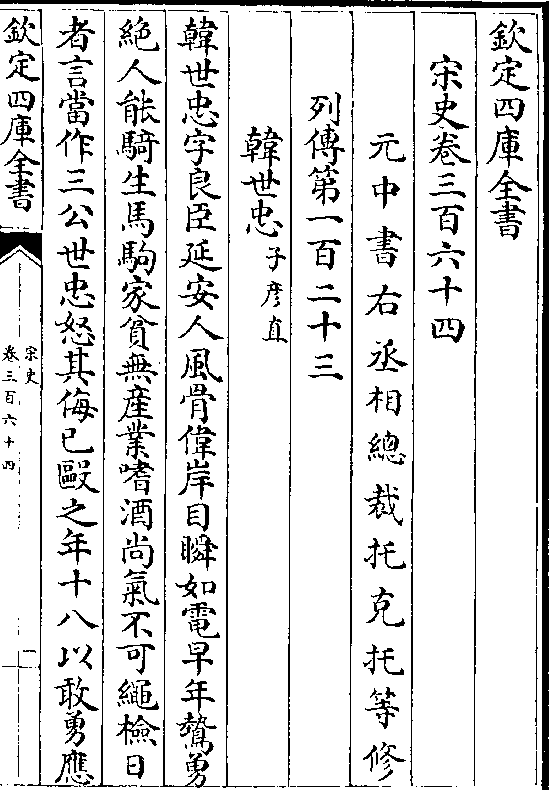 欽定四庫全書
宋史卷三百六十四
元中書右丞相總裁托克托等修
列傳第一百二十三
韓世忠子彦直
韓世忠字良臣延安人風骨偉岸目瞬如電早年鷙勇
絶人能騎生馬駒家貧無産業嗜酒尚氣不可繩檢日
者言當作三公世忠怒其侮已毆之年十八以敢勇應
欽定四庫全書
宋史
卷三百六十四
一